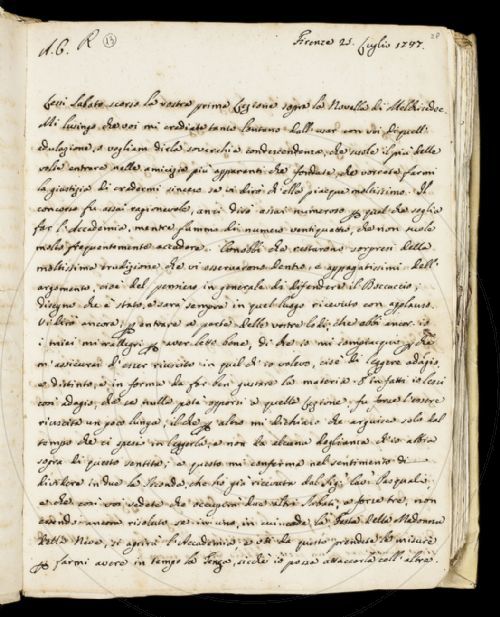 A. C. R (13) Firenze 25. Luglio 1747. 28
Lessi Sabato scorso la vostra prima Lezione sopra la Novella di Melchisedec.
Mi lusingo che voi mi crediate tanto lontano dall'usar con voi di quell'
adulazione, o vogliam dirla soverchia condescendenza, che suole il più delle
volte entrare nelle amicizie più apparenti che fondate, che vorrete farmi
la giustizia di credermi sincero se vi dirò ch'ella piacque moltissimo. Il
concorso fu assai ragionevole, anzi dirò assai numeroso per quel che soglia
far l'Accademia, mentre fummo di numero ventiquattro, che non suole
molto frequentemente accadere. Conobbi che restarono sorpresi della
moltissima erudizione che vi osservarono dentro, e appagatissimi dell'
argomento, cioè del pensiero in generale di difendere il Boccaccio;
disegno che è stato, e sarà sempre in quel luogo ricevuto con applauso.
Vi dirò ancora, per entrare a parte delle vostre lodi, che ebbi ancor io
i miei mi rallegri per aver letto bene, di che io mi compiacqui, perchè
m'assicurai d'esser riuscito in quel ch'io volevo, cioè di leggere adagio,
e distinto, e in forma da far ben gustare la materia. E in fatti io lessi
con adagio, che se nulla potè opporsi a quella Lezione, fu forse l'essere
riuscita un poco lunga; il che per altro mi dichiaro che arguisco solo dal
tempo che ci spesi in leggerla, e non da alcuna doglianza ch'io abbia
sopra di questo sentita; e questo mi conferma nel sentimento di
dividere in due la Seconda, che ho già ricevuta dal Sig. Pasquali,
e che così voi vedete che occuperà due altri Sabati, e forse tre, non
essendo ancora risoluto se in uno, in cui cade la Festa della Madonna
della Neve, si aprirà l'Accademia, e voi da questo prendete le misure
per farmi avere in tempo la Terza, sicchè io possa attaccarla coll'altra.